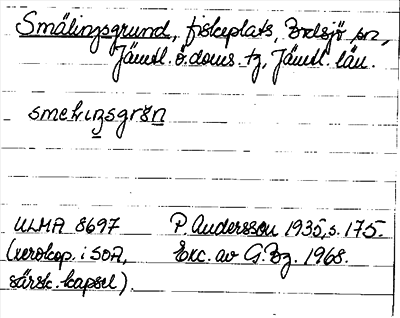 Smålingsgrund, fiskeplats, Bodsjö sn,
Jämtl. ö. doms. tg, Jämtl. län.
ULMA 8697 P. Andersson 1935, s. 175.
(xerokop. i SOA, Exc. av G. Bg. 1968.
särsk. kapsel).